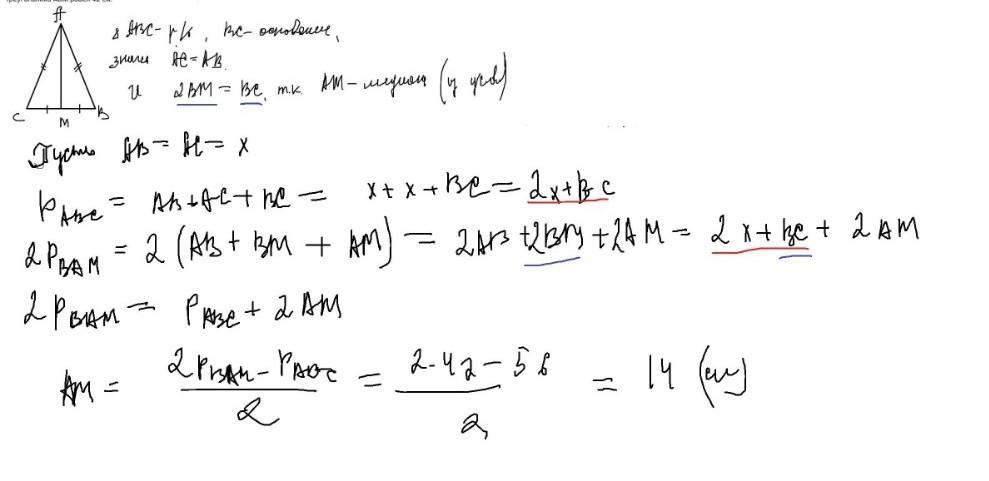 треугольника ABM равен 42 см.
A
△ABC - р/б, BC - основание,
значит AC = AB.
И 2BM = BC, т.к. AM - медиана (из усл)
C M B
Пусть AB = AC = x
P_ABC = AB + AC + BC = x + x + BC = 2x + BC
2P_BAM = 2 (AB + BM + AM) = 2AB + 2BM + 2AM = 2x + BC + 2AM
2P_BAM = P_ABC + 2AM
AM = (2P_BAM - P_ABC)/2 = (2·42 - 56)/2 = 14 (см)